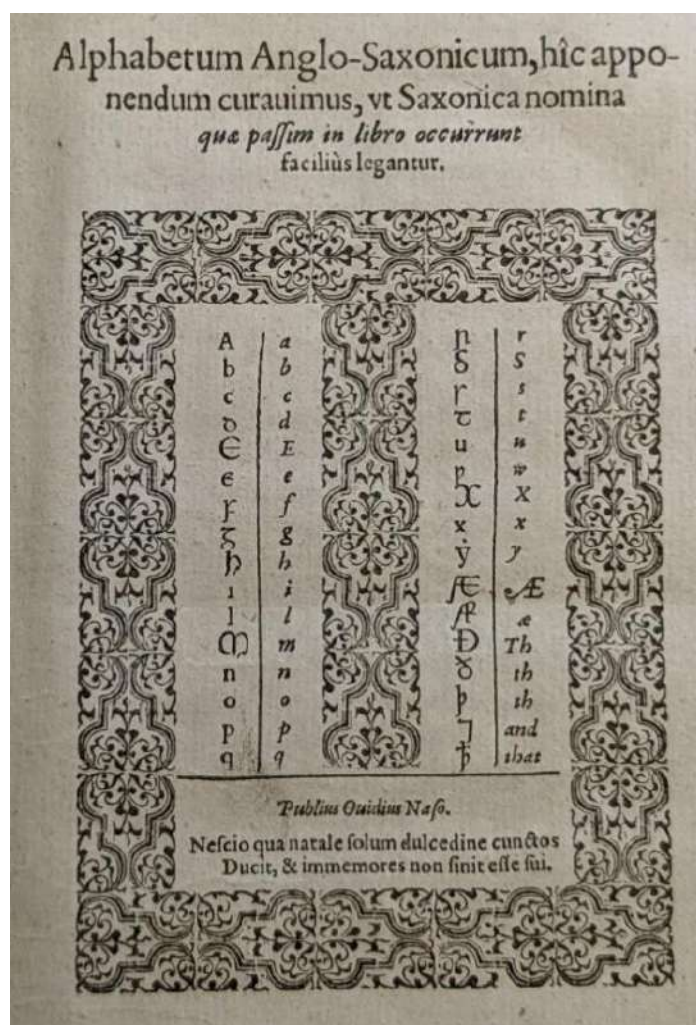 Alphabetum Anglo-Saxonicum, hîc appo-
nendum curauimus, vt Saxonica nomina
quæ paſſim in libro occurrunt
faciliùs legantur.
A a
b b
c c
ꝺ d
Є E
e e
ꝼ f
Ᵹ g
h h
ı i
l l
M m
n n
o o
p p
q q
ꞃ r
S S
ꞅ s
ꞇ t
u u
ƿ w
X X
x x
ẏ y
Æ Æ
Æ æ
Ð Th
ð th
þ th
⁊ and
ꝥ that
Publius Ouidius Naſo.
Neſcio qua natale ſolum dulcedine cunctos
Ducit, & immemores non ſinit eſſe ſui.